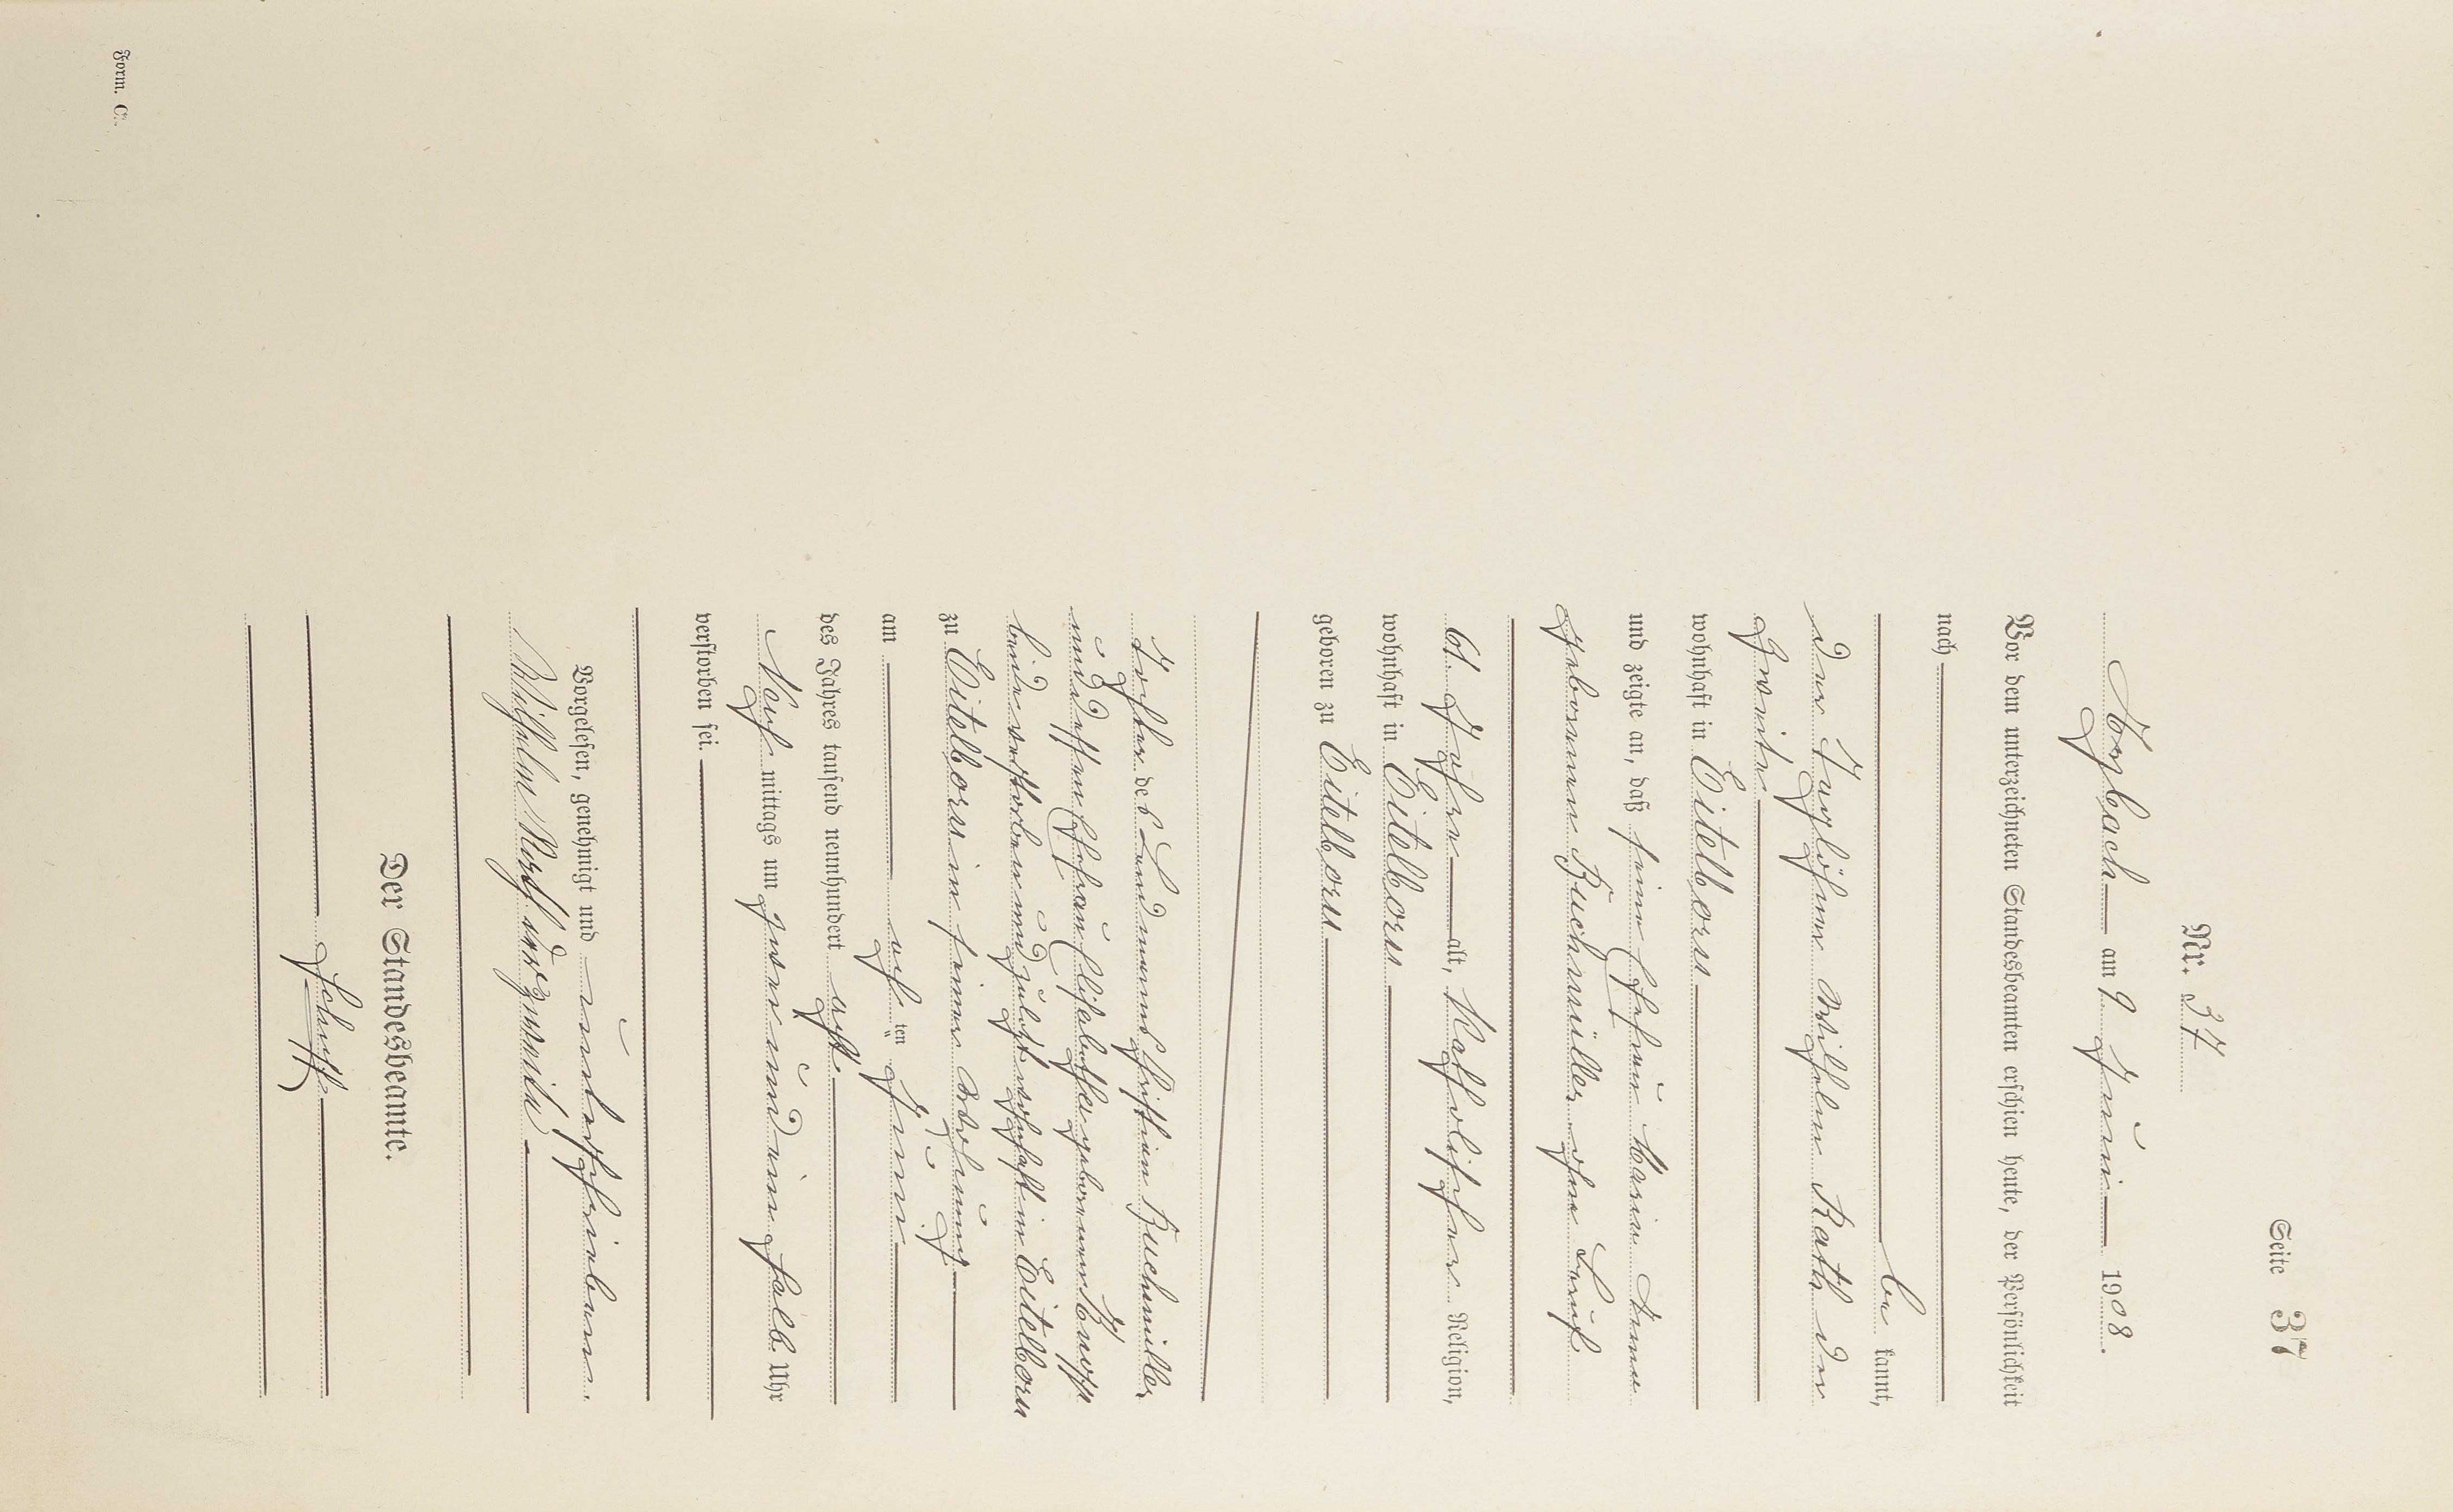 Seite 37
Nr. 37
Arzbach am 9. Juni 1908.
Vor dem unterzeichneten Standesbeamten erschien heute, der Persönlichkeit
nach
be kannt,
der Taglöhner Wilhelm Kath der
Zweite
wohnhaft in Eitelborn
und zeigte an, daß seine Ehefrau Maria Anna
geborenen Buchmüller ohne Beruf
61 Jahre alt, Katholischer Religion,
wohnhaft in Eitelborn
geboren zu Eitelborn
Tochter des Landmann Christian Buchmüller
und dessen Ehefrau Elisabetha geborenen Knopp
beide verstorben und zuletzt wohnhaft in Eitelborn
zu Eitelborn in seiner Wohnung
am acht ten Juni
des Jahres tausend neunhundert acht
Nach mittags um zwei und ein halb Uhr
verstorben sei.
Vorgelesen, genehmigt und unterschrieben.
Wilhelm Kath der zweite
Der Standesbeamte.
Form. C.